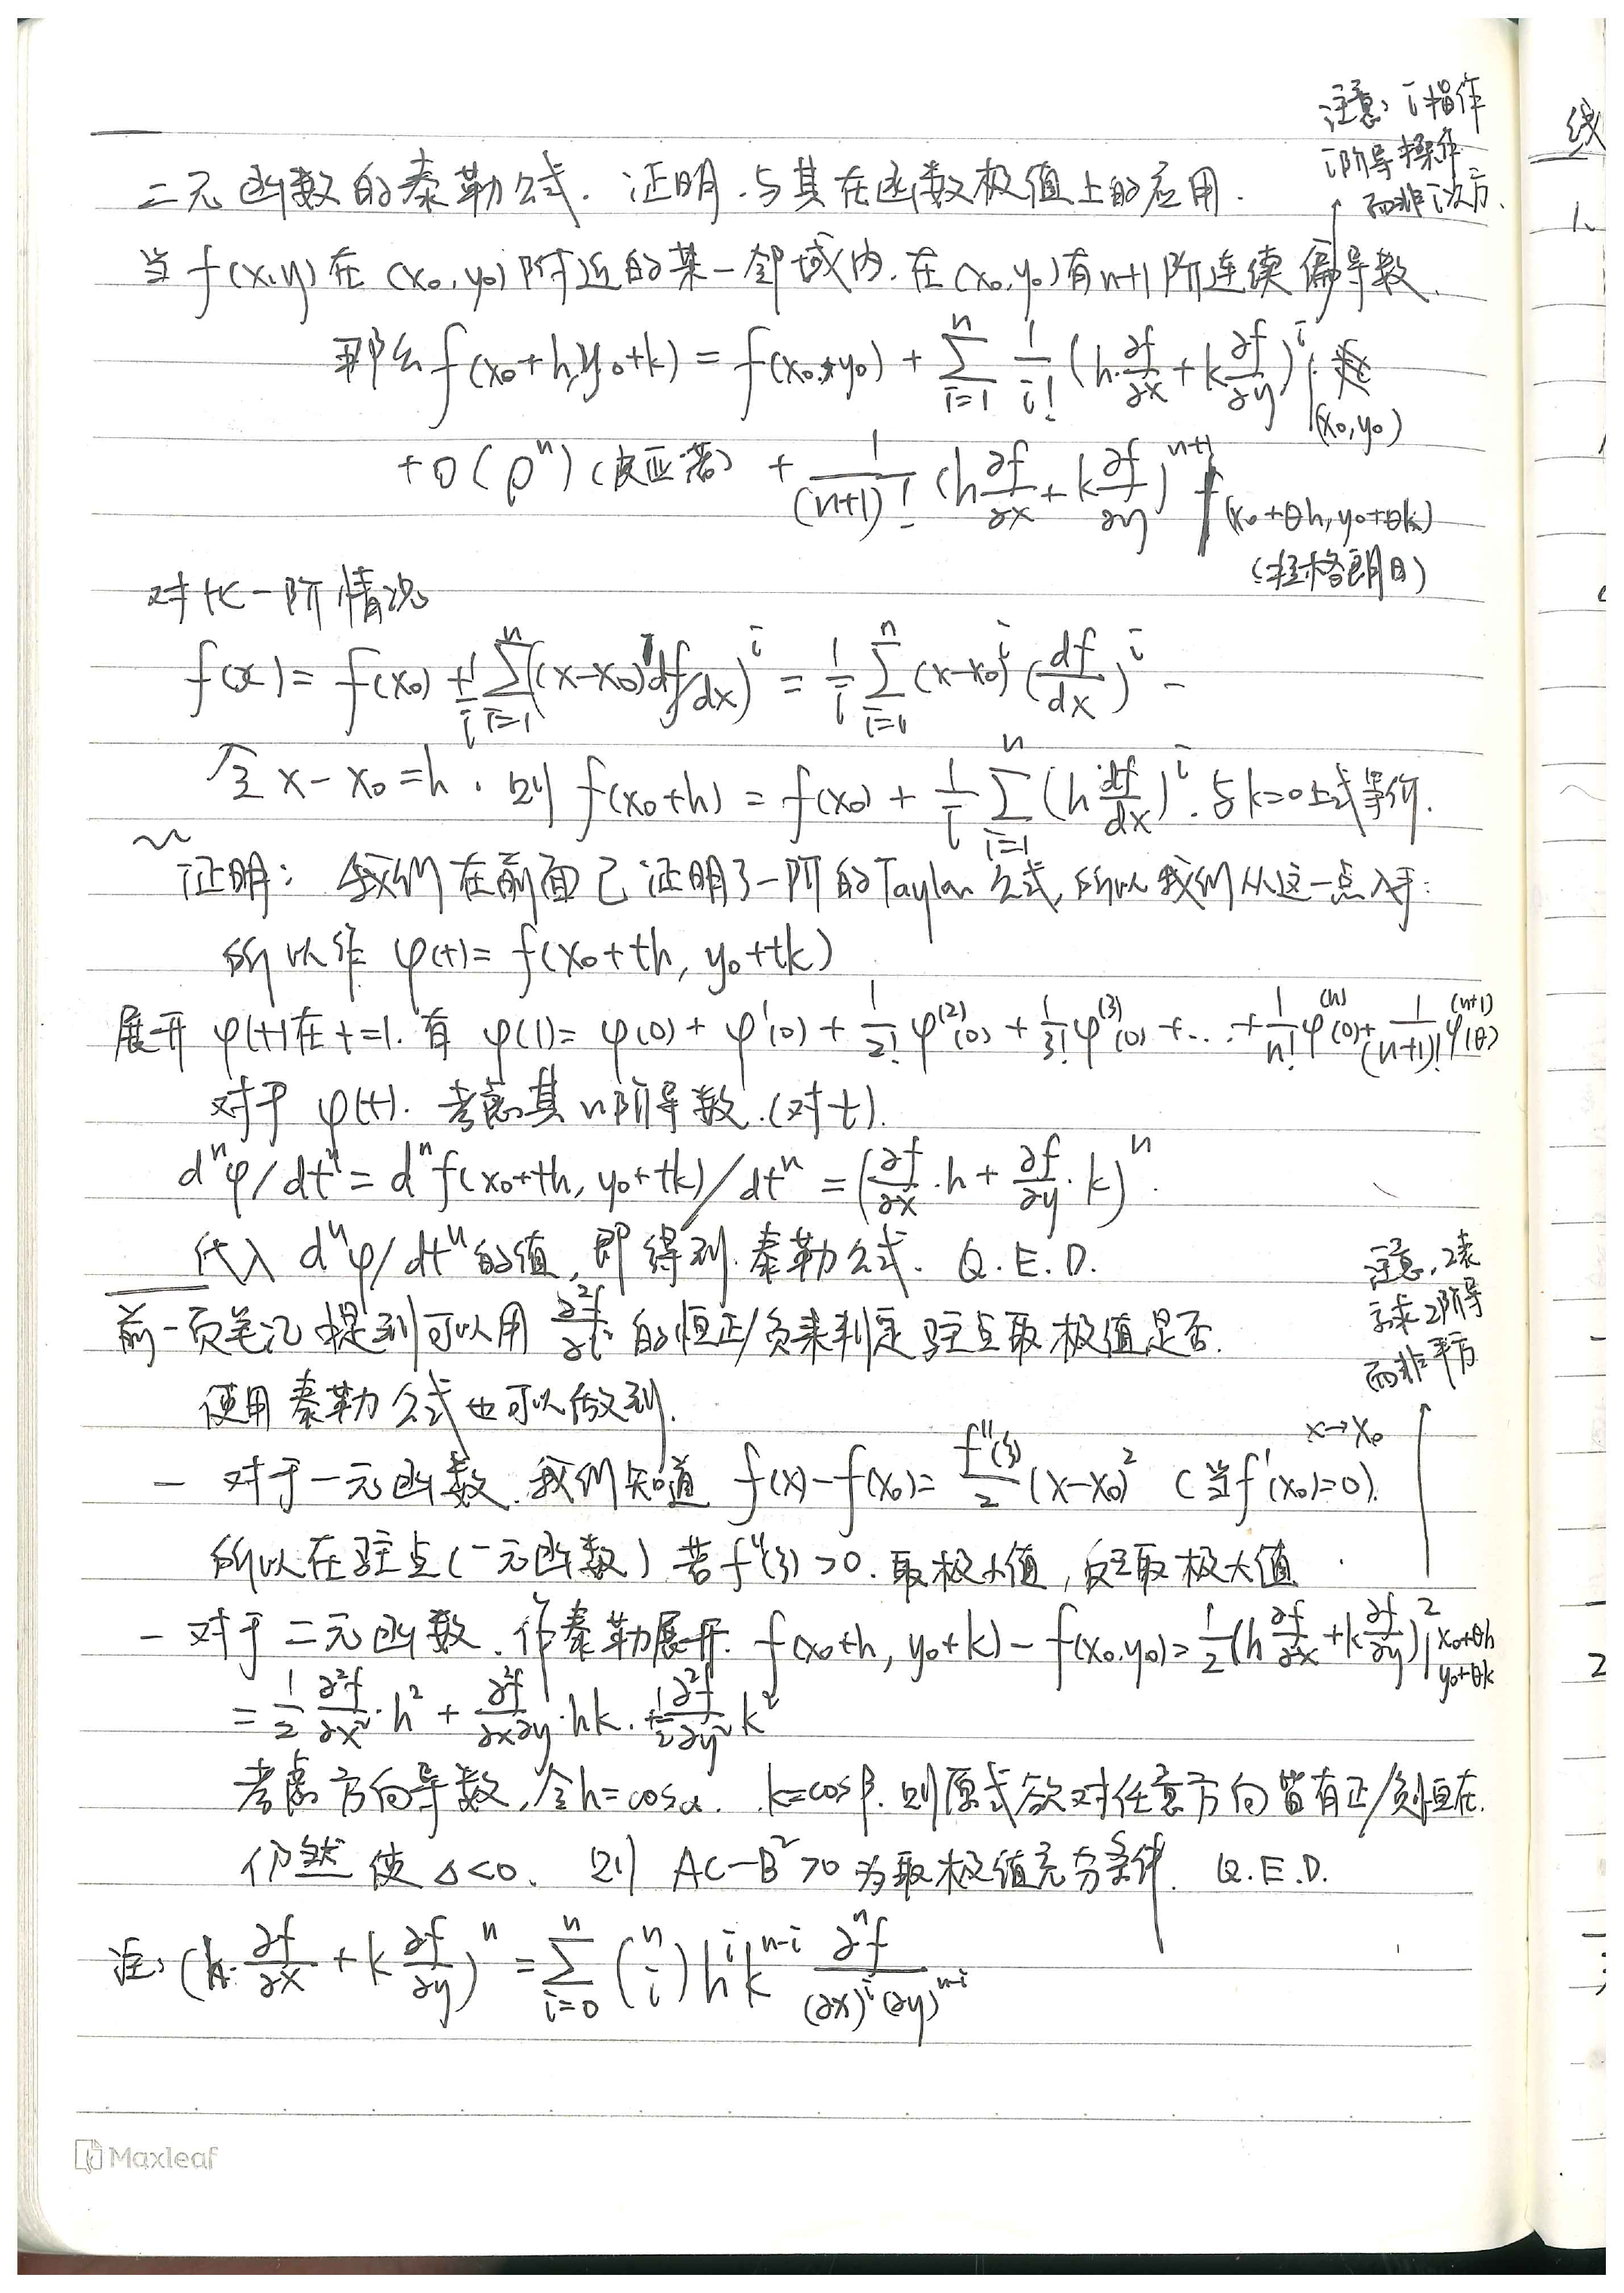 注意: i指作
i阶导操作
而非i次方.
二元函数的泰勒公式. 证明.与其在函数极值上的应用.
当 f(x,y) 在 (x₀,y₀) 附近的某一邻域内.在(x₀,y₀)有n+1阶连续偏导数.
那么 f(x₀+h,y₀+k) = f(x₀,y₀) + ∑_{i=1}^{n} 1/i! (h·∂f/∂x + k ∂f/∂y)^i |_(x₀,y₀)
+ o(ρ^n) (皮亚诺) + 1/(n+1)! (h ∂f/∂x + k ∂f/∂y)^{n+1} f_(x₀+θh, y₀+θk)
(拉格朗日)
对比一阶情况
f(x) = f(x₀) + 1/i ∑_{i=1}^{n} ((x-x₀) df/dx)^i = 1/i ∑_{i=1}^{n} (x-x₀)^i (df/dx)^i -
令 x-x₀=h. 则 f(x₀+h) = f(x₀) + 1/i ∑_{i=1}^{n} (h df/dx)^i. 与k=0上式等价.
证明: 我们在前面已证明了一阶的Taylor公式,所以我们从这一点入手:
所以作 φ(t) = f(x₀+th, y₀+tk)
展开 φ(t)在t=1. 有 φ(1) = φ(0) + φ'(0) + 1/2! φ^(2)(0) + 1/3! φ^(3)(0) + ... + 1/n! φ^(n)(0) + 1/(n+1)! φ^(n+1)(θ)
对于 φ(t). 考虑其n阶导数.(对t).
d^nφ/dt^n = d^n f(x₀+th, y₀+tk)/dt^n = (∂f/∂x·h + ∂f/∂y·k)^n.
代入 d^nφ/dt^n 的值, 即得到泰勒公式. Q.E.D.
注意, 2表
示求2阶导
而非平方
前一页笔记中提到可以用 ∂²f/∂l² 的恒正/负来判定驻点取极值是否.
使用泰勒公式也可以做到.
- 对于一元函数. 我们知道 f(x)-f(x₀) = f''(ξ)/2 (x-x₀)² (当f'(x₀)=0). x→x₀
所以在驻点(一元函数) 若f''(ξ)>0. 取极小值, 反之取极大值.
- 对于二元函数. 作泰勒展开. f(x₀+h, y₀+k) - f(x₀,y₀) = 1/2 (h ∂f/∂x + k ∂f/∂y)² |_{x₀+θh y₀+θk}
= 1/2 ∂²f/∂x²·h² + ∂²f/∂x∂y·hk. + 1/2 ∂²f/∂y² k²
考虑方向导数, 令h=cosα. k=cosβ. 则原式欲对任意方向皆有正/负恒在.
仍然使 Δ<0. 则 AC-B²>0 为取极值充分条件. Q.E.D.
注: (h·∂f/∂x + k ∂f/∂y)^n = ∑_{i=0}^{n} (n i) h^i k^{n-i} ∂^n f/(∂x)^i(∂y)^{n-i}
Maxleaf
线
1.
2